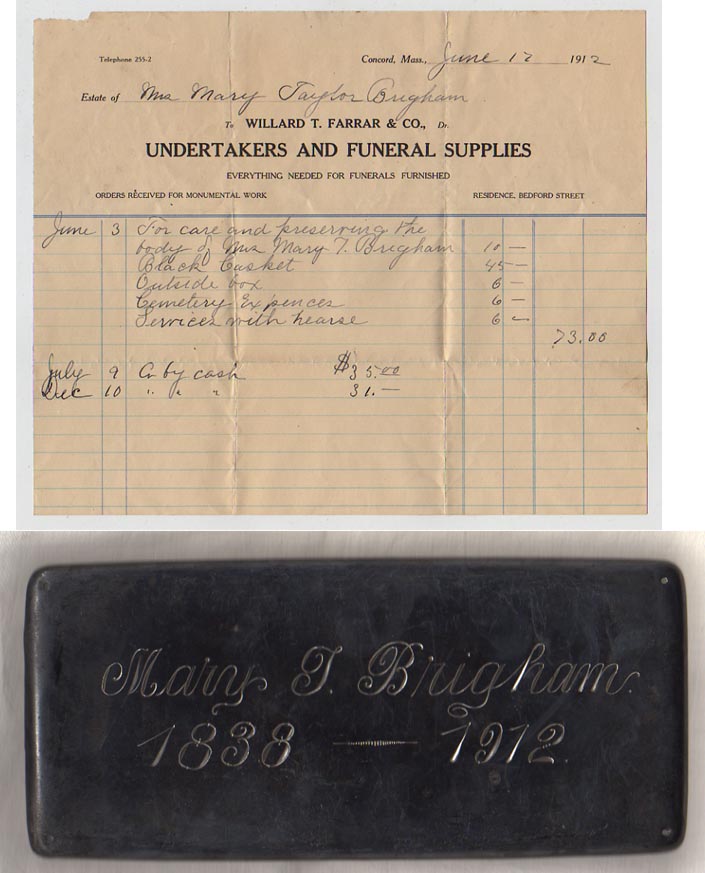 Telephone 255-2
Concord, Mass., June 17 1912
Estate of Mrs Mary Taylor Brigham
To WILLARD T. FARRAR & CO., Dr.
UNDERTAKERS AND FUNERAL SUPPLIES
EVERYTHING NEEDED FOR FUNERALS FURNISHED
ORDERS RECEIVED FOR MONUMENTAL WORK RESIDENCE, BEDFORD STREET
June 3 For care and preserving the
body of Mrs Mary T. Brigham 10 —
Black Casket 45 —
Outside box 6 —
Cemetery Expences 6 —
Services with hearse 6 —
73.00
July 9 Cr by cash $35.00
Dec 10 " " " 31.—
Mary T. Brigham.
1838 — 1912.